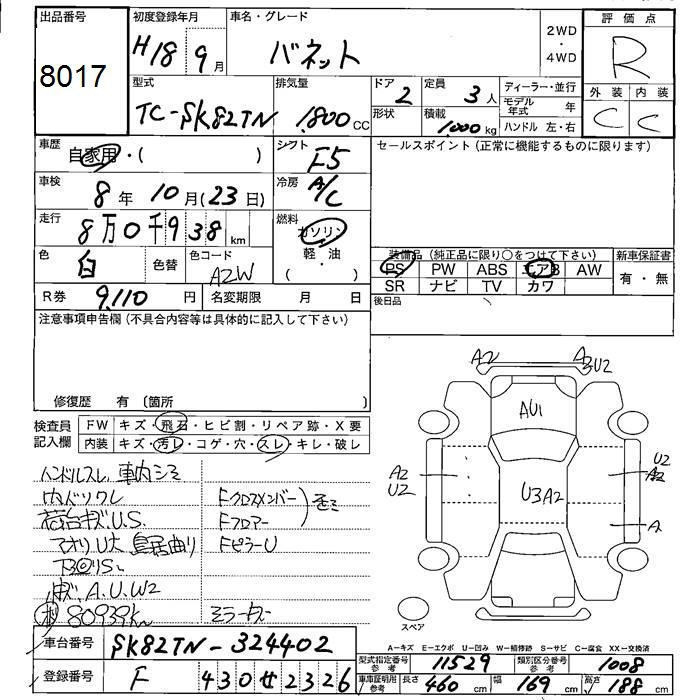 出品番号
8017
初度登録年月
H18 9月
車名・グレード
バネット
2WD
・
4WD
評価点
R
外装 内装
C C
型式
TC-SK82TN
排気量
1,800 CC
ドア
2
形状
定員
3人
積載
1,000 kg
ディーラー・並行
モデル年式 年
ハンドル 左・右
車歴
自家用・( )
シフト
F5
セールスポイント (正常に機能するものに限ります)
車検
8年 10月(23日)
冷房
A/C
走行
8万0千938km
燃料
ガソリン
軽・油
( )
色
白
色替
色コード
A2W
装備品 (純正品に限り○をつけて下さい)
新車保証書
PS PW ABS エアB AW
SR ナビ TV カワ
有・無
R券 9,110円
名変期限 月 日
後日品
注意事項申告欄 (不具合内容等は具体的に記入して下さい)
修復歴 有 (箇所
検査員
記入欄
FW キズ・飛石・ヒビ割・リペア跡・X要
内装 キズ・汚レ・コゲ・穴・スレ・キレ・破レ
ハンドルスレ 車内シミ
内ドツワレ
荷台キズU.S. Fクロスメンバー
Fフロアー
アオリU大 鳥居曲り Fピラー U
A.U.W2
80939km
A2
A2U2
AU1
A2
U2
U3A2
U2
A2
A
スペア
車台番号 SK82TN-324402
登録番号 F 430せ2326
A-キズ E-エクボ U-凹み W-補修跡 S-サビ C-腐食 XX-交換済
型式指定番号
参考
11529
類別区分番号
参考
1008
車庫証明用
参考
長さ 460 cm 幅 169 cm 高さ 188 cm